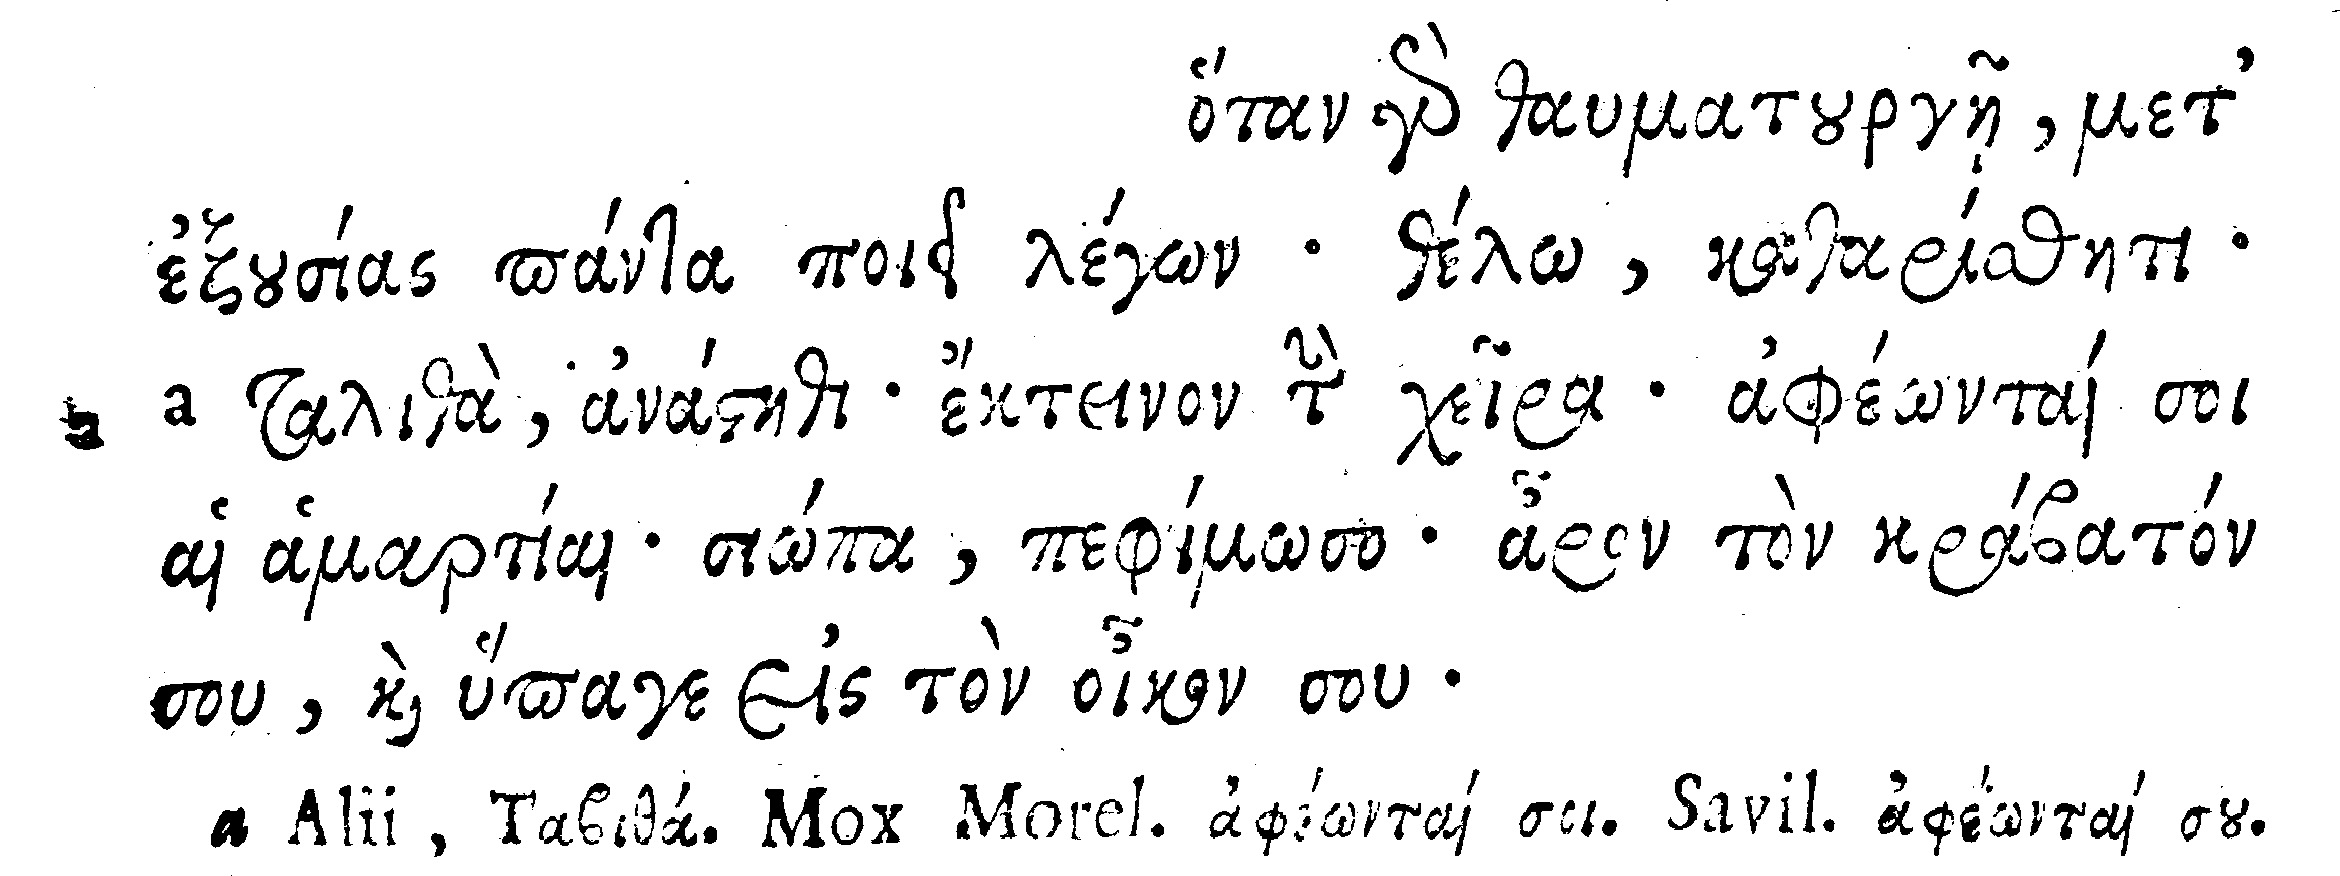 ὅταν γὰρ θαυματουργῇ, μετ᾽
ἐξουσίας πάντα ποιεῖ λέγων· θέλω, καθαρίσθητι·
a Ταλιθὰ, ἀνάστηθι· ἔκτεινον τὴν χεῖρα· ἀφέωνταί σοι
αἱ ἁμαρτίαι· σιώπα, πεφίμωσο· ἆρον τὸν κράβατόν
σου, καὶ ὕπαγε εἰς τὸν οἶκον σου·
a Alii, Ταβιθά. Mox Morel. ἀφέωνταί σοι. Savil. ἀφέωνταί σου.